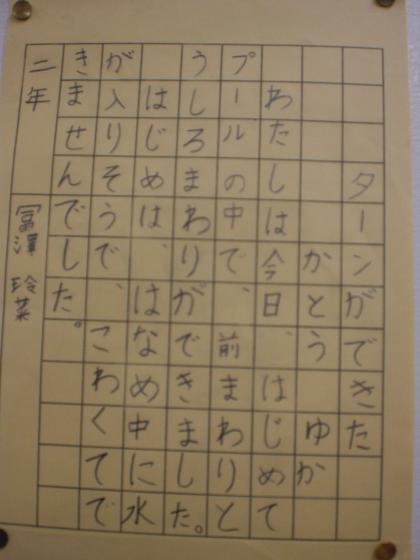 ターンができた
かとう ゆか
わたしは今日、はじめて
プールの中で、前まわりと
うしろまわりができました。
はじめは、はなめ中に水
が入りそうで、こわくてで
きませんでした。
二年 冨澤 玲菜